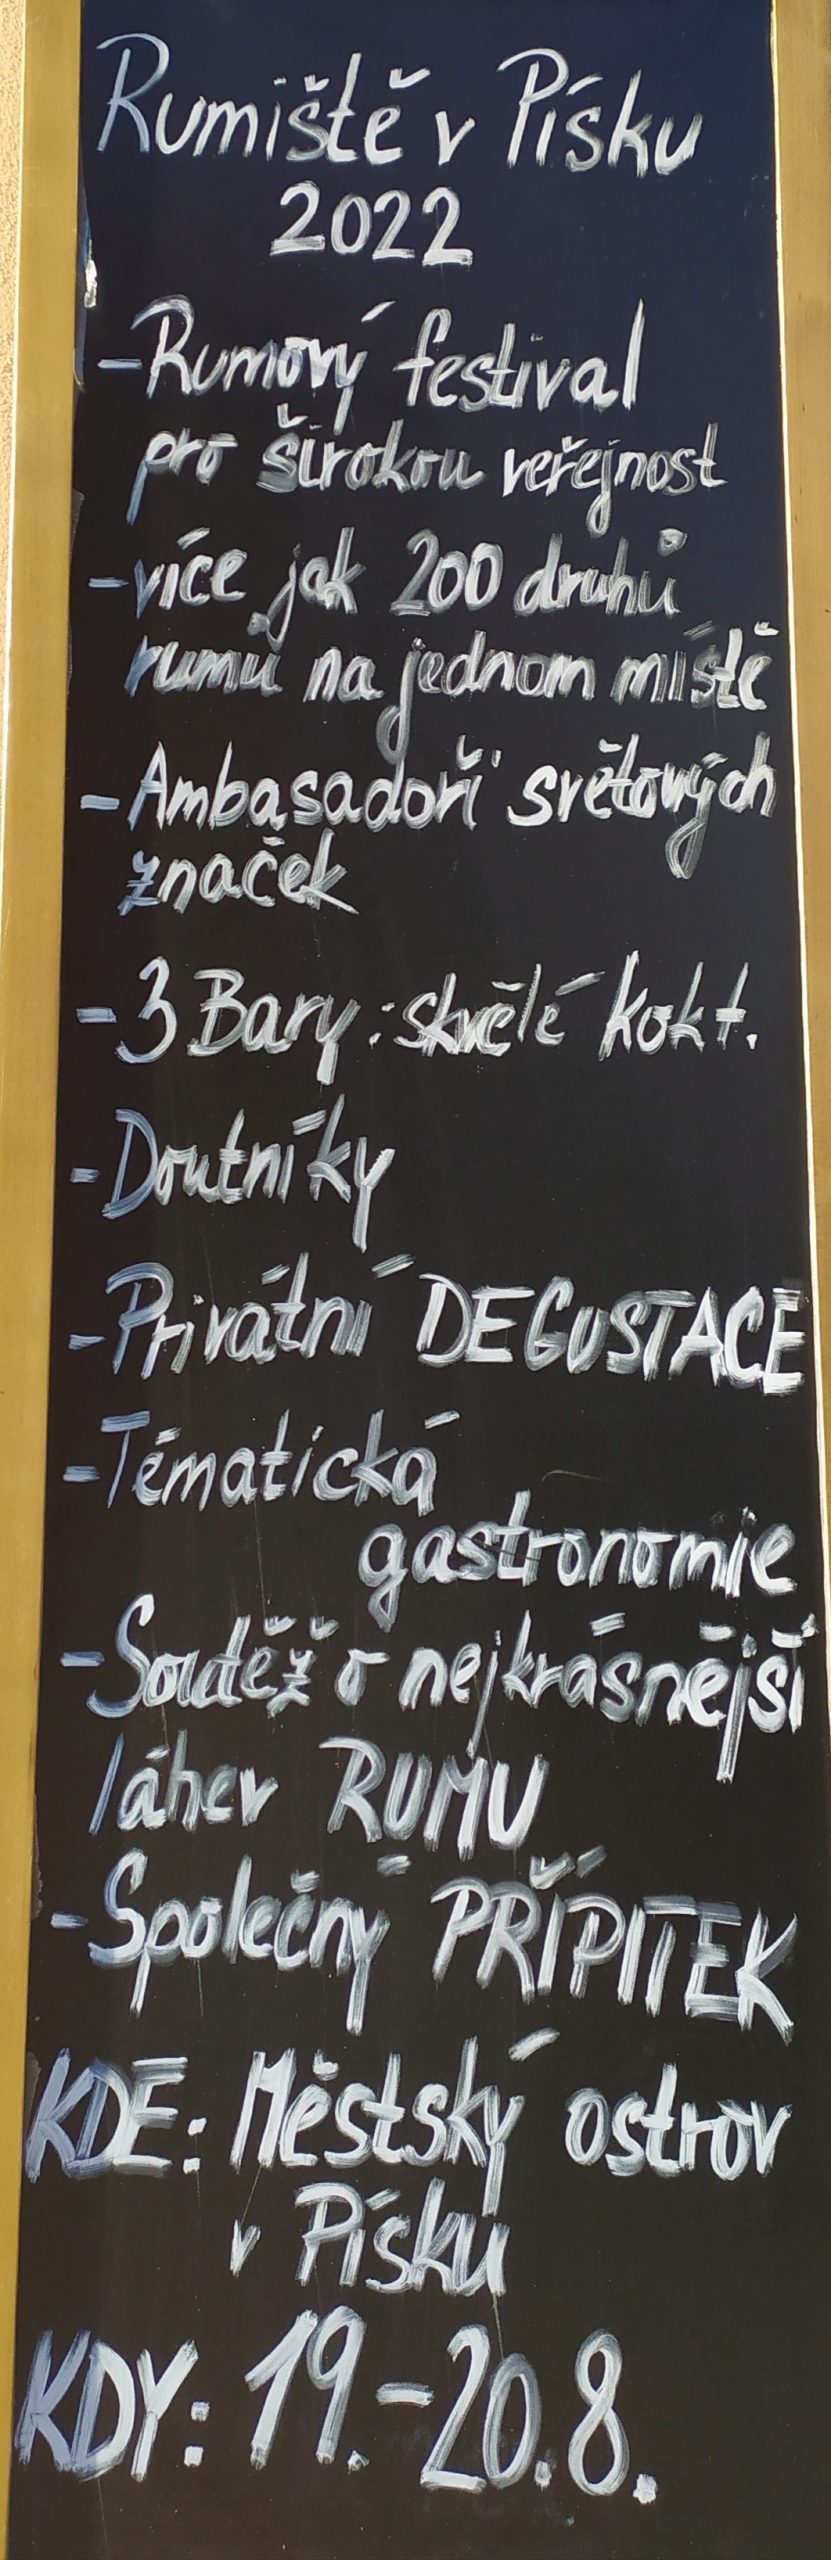 Rumiště v Písku
2022
- Rumový festival
pro širokou veřejnost
- více jak 200 druhů
rumů na jednom místě
- Ambasadoři světových
značek
- 3 Bary: skvělé kokt.
- Doutníky
- Privátní DEGUSTACE
- Tématická
gastronomie
- Soutěž o nejkrásnější
láhev RUMU
- Společný PŘÍPITEK
KDE: Městský ostrov
v Písku
KDY: 19.-20.8.